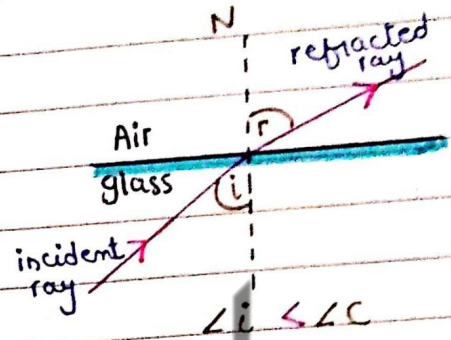 N
refracted
ray
Air
r
glass
i
incident
ray
∠i < ∠C